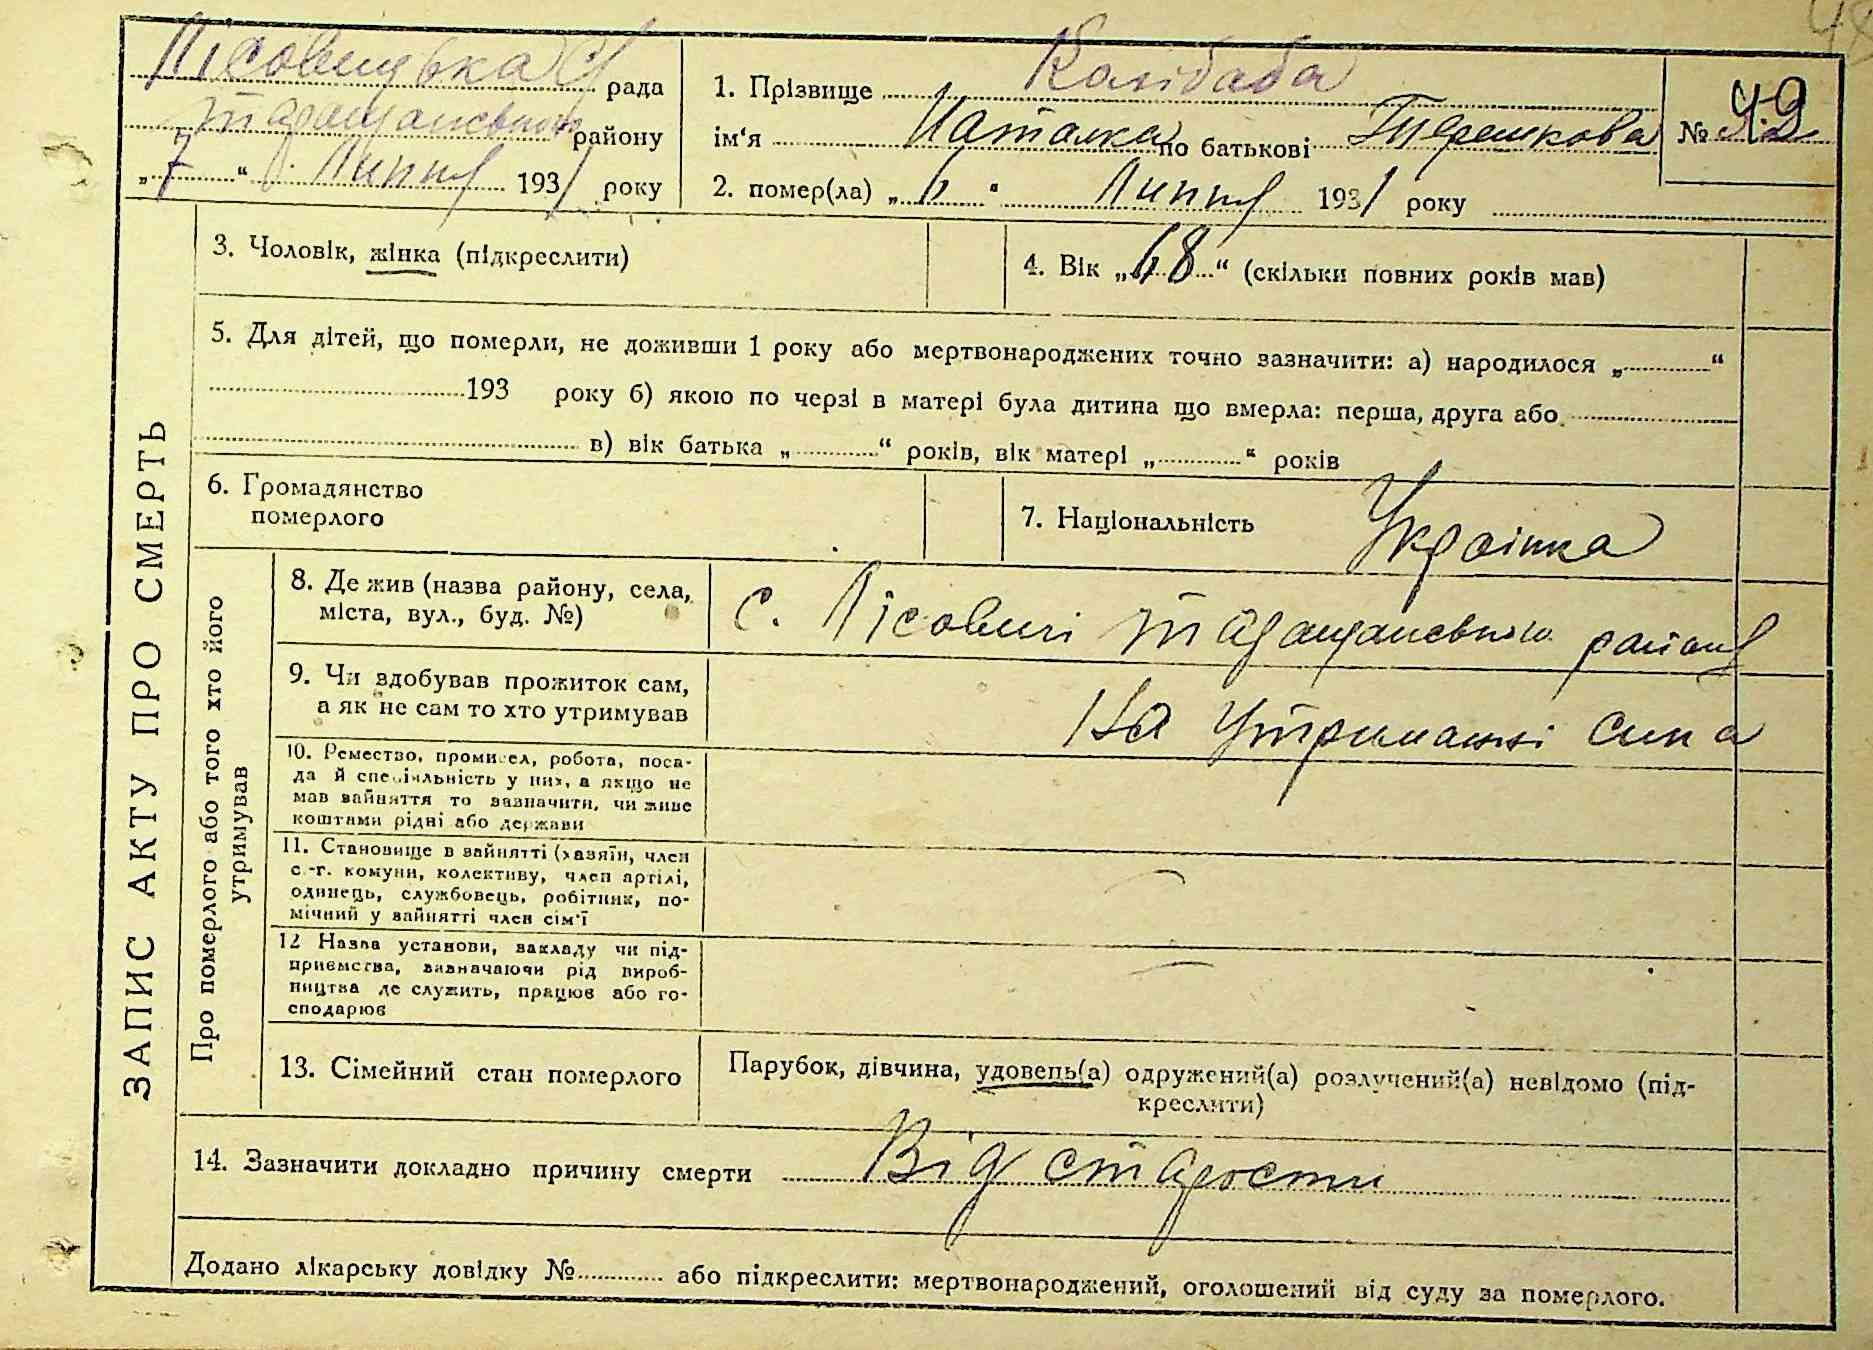 Лісовицька с/ рада
Таращанського району
„7“ Липня 1931 року
1. Прізвище Калібаба
ім‘я Наталка по батькові Терешкова
№ 42
2. помер(ла) „6“ Липня 1931 року
3. Чоловік, жінка (підкреслити)
4. Вік „68“ (скільки повних років мав)
5. Для дітей, що померли, не доживши 1 року або мертвонароджених точно зазначити: а) народилося „ “
193 року б) якою по черзі в матері була дитина що вмерла: перша, друга або
в) вік батька „ “ років, вік матері „ “ років
6. Громадянство
померлого
7. Національність Українка
ЗАПИС АКТУ ПРО СМЕРТЬ
Про померлого або того хто його
утримував
8. Де жив (назва району, села,
міста, вул., буд. №)
с. Лісовичі Таращанського району
9. Чи вдобував прожиток сам,
а як не сам то хто утримував
На утриманні сина
10. Ремество, промисел, робота, поса-
да й спеціяльність у них, а якщо не
мав зайняття то зазначити, чи живе
коштами рідні або держави
11. Становище в зайнятті (хазяїн, член
с.-г. комуни, колективу, член артілі,
одинець, службовець, робітник, по-
мічний у зайнятті член сім‘ї
12 Назва установи, закладу чи під-
приємства, визначаючи рід вироб-
ництва де служить, працює або го-
сподарює
13. Сімейний стан померлого
Парубок, дівчина, удовець(а) одружений(а) розлучений(а) невідомо (під-
креслити)
14. Зазначити докладно причину смерти Від старости
Додано лікарську довідку № або підкреслити: мертвонароджений, оголошений від суду за померлого.